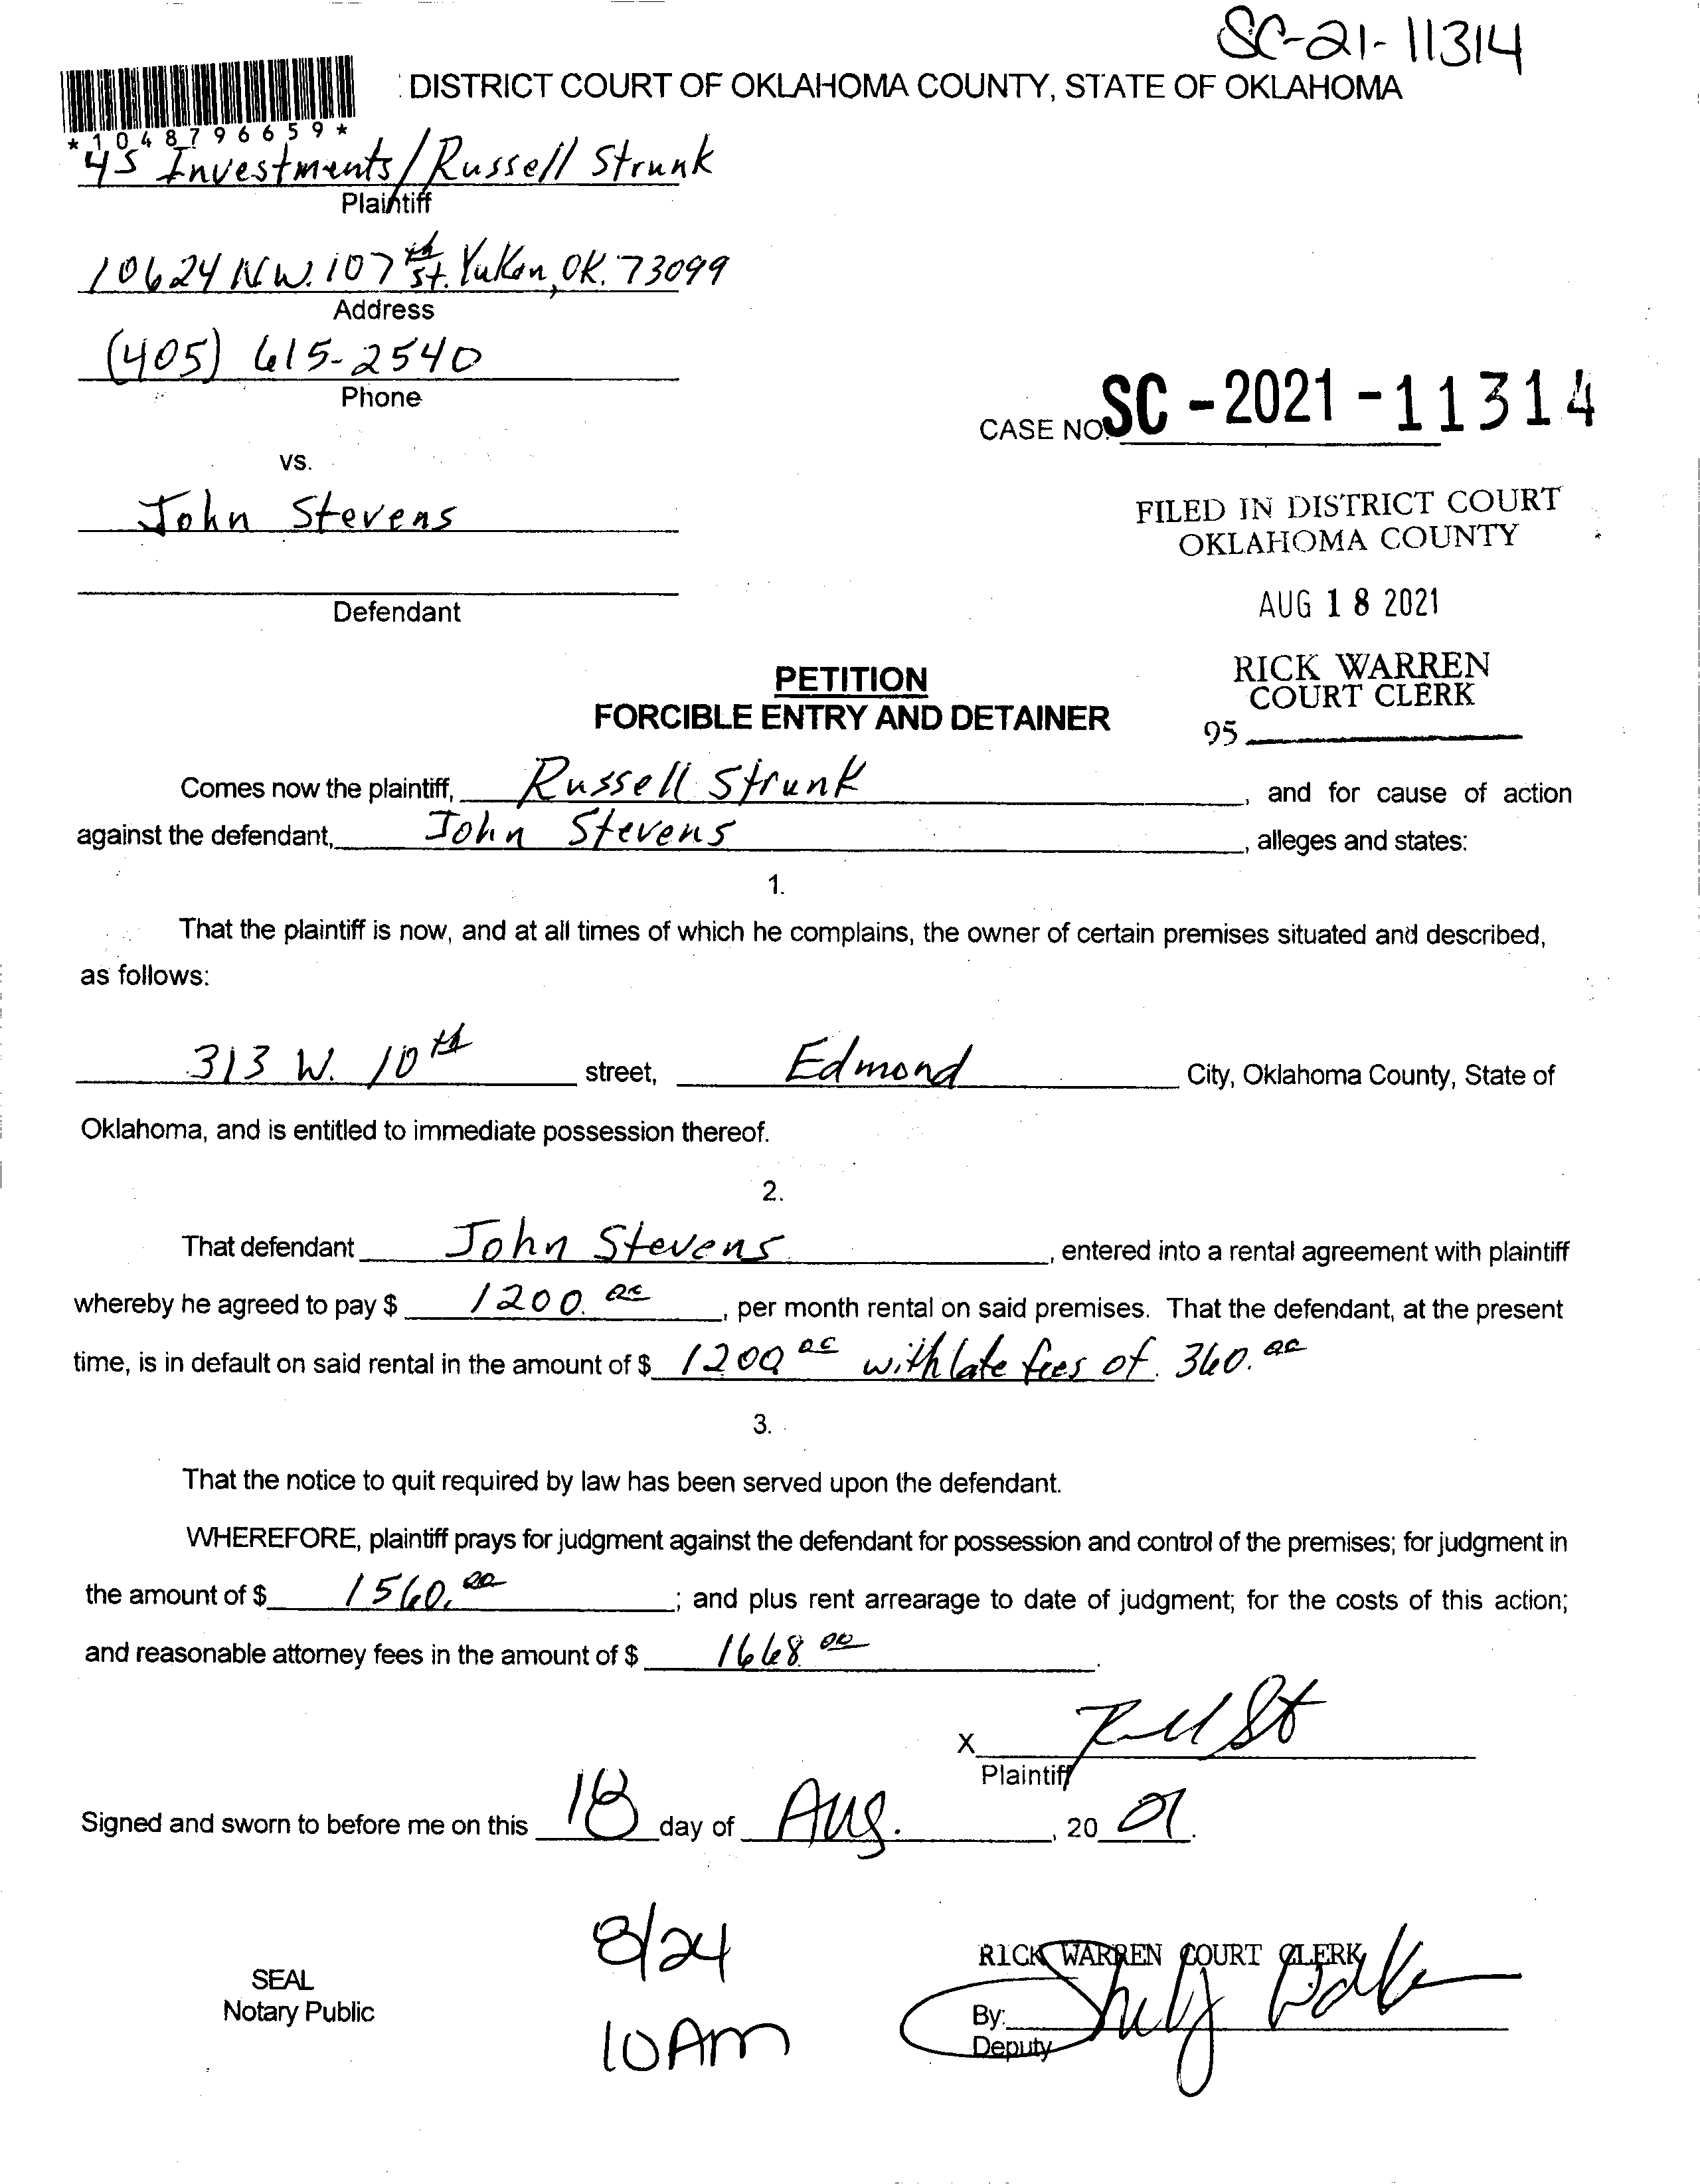 SC-21-11314
DISTRICT COURT OF OKLAHOMA COUNTY, STATE OF OKLAHOMA
*1048796659*
4S Investments/Russell Strunk
Plaintiff
10624 N.W. 107th St. Yukon, OK. 73099
Address
(405) 615-2540
Phone
CASE NO. SC-2021-11314
vs.
John Stevens
FILED IN DISTRICT COURT
OKLAHOMA COUNTY
Defendant
AUG 18 2021
RICK WARREN
COURT CLERK
95
PETITION
FORCIBLE ENTRY AND DETAINER
Comes now the plaintiff, Russell Strunk, and for cause of action
against the defendant, John Stevens, alleges and states:
1.
That the plaintiff is now, and at all times of which he complains, the owner of certain premises situated and described,
as follows:
313 W. 10th street, Edmond City, Oklahoma County, State of
Oklahoma, and is entitled to immediate possession thereof.
2.
That defendant John Stevens, entered into a rental agreement with plaintiff
whereby he agreed to pay $ 1200.00, per month rental on said premises. That the defendant, at the present
time, is in default on said rental in the amount of $ 1200 00 with late fees of 360.00
3.
That the notice to quit required by law has been served upon the defendant.
WHEREFORE, plaintiff prays for judgment against the defendant for possession and control of the premises; for judgment in
the amount of $ 1560.00; and plus rent arrearage to date of judgment; for the costs of this action;
and reasonable attorney fees in the amount of $ 1668 00.
X
Plaintiff
Signed and sworn to before me on this 18 day of Aug., 20 21.
8/24
10AM
SEAL
Notary Public
RICK WARREN COURT CLERK
By:
Deputy